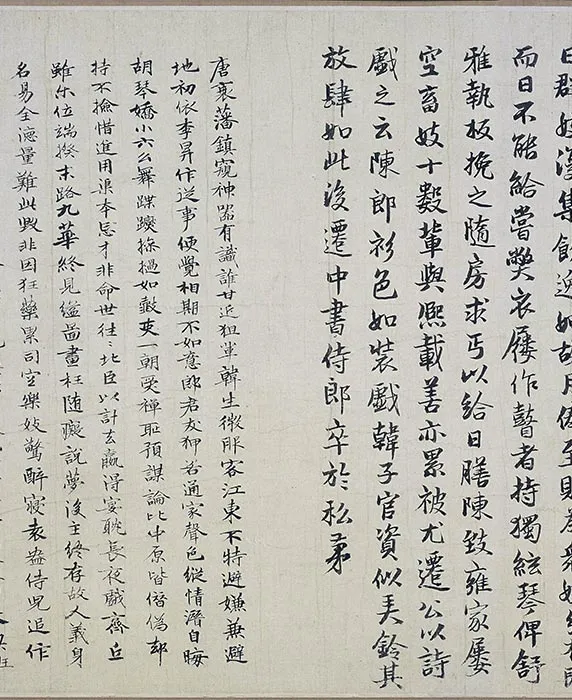 日群妓溥集飲逸如故月俸至則為衆妓
而日不能給嘗弊衣屨作瞽者持獨絃琴俾舒
雅執板挽之隨房求丐以給日膳陳致雍家屢
空畜妓十數輩與熙載善亦累被尤遷公以詩
戲之云陳郎衫色如裝戲韓子官資似美鈴其
放肆如此後遷中書侍郎卒於私第
唐衰藩鎮窺神器有識誰甘近狙輩韓生微服客江東不特避嫌兼避
地初依李昪作逆事便覺相期不如意郎君友狎若通家聲色縱情潛自晦
胡琴嬌小六幺舞蹀躞摻撾如鼓吏一朝受禪恥預謀論比中原皆僭偽却
持不撿惜進用渠本忌才非命世往〻北臣以計去贏得宴耽長夜戲齊丘
雖尔位端揆末路九華終見縊啚畫枉随癡說夢後主終存故人義身
名易全德量難此毀非因狂藥累司空樂妓驚醉寢袁盎侍兒追作